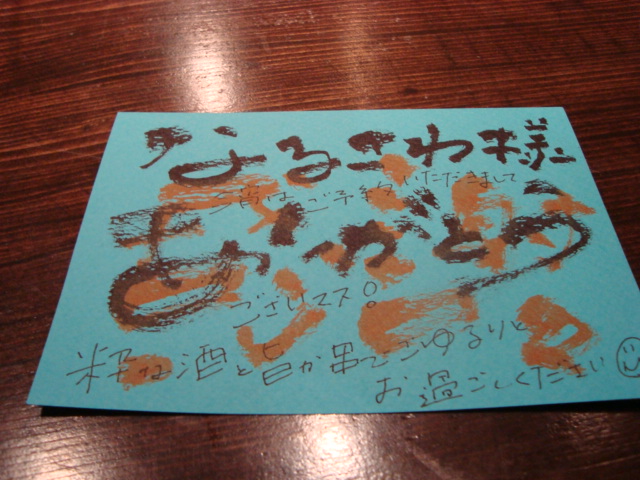 なるさわ様
今宵はご予約いただきまして
ありがとう
ございマス!
粋な酒と旨か串でごゆるりと
お過ごしください